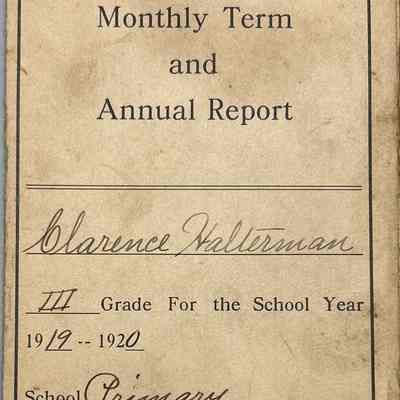 Monthly Term
and
Annual Report
Clarence Halterman
III Grade For the School Year
1919 -- 1920
School Primary